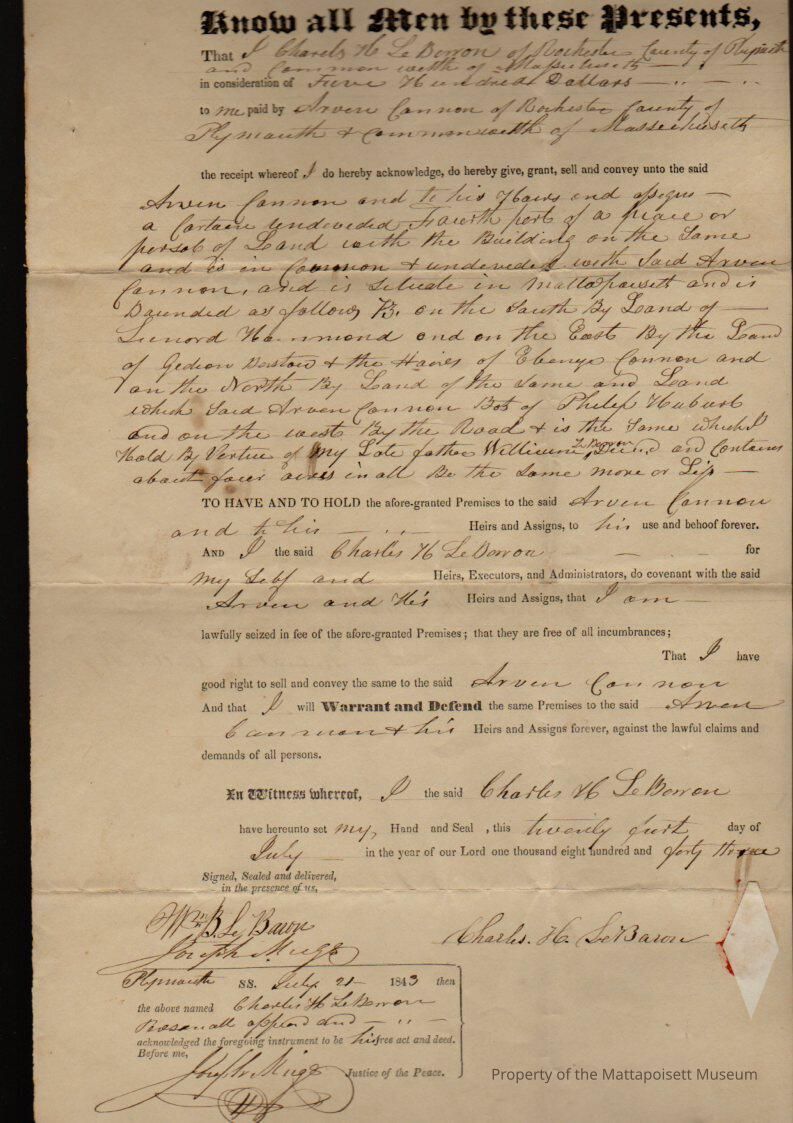 Know all Men by these Presents,
That I Charels H LeBorron of Rochester County of Plymouth
and Common welth of Massachusetts
in consideration of Hundred Dollars
to me paid by Arven Cannon of Rochester County of
Plymouth & Commonwelth of Massachusetts
the receipt whereof I do hereby acknowledge, do hereby give, grant, sell and convey unto the said
Arven Cannon and to his Hairs and
a Cartain undevided Fawrth part of a or
of Land with the Building on the Same
and is in Common & undevided with Said Arven
Cannon, and is Situate in Mattapoisett and is
Bounded as follows on the South By Land of
Hammond and on the East By the Land
of Gedeon Barstow & the Haires of Cannon and
on the North By Land of the Same and Land
which Said Arven Cannon Bot of Philip
and on the west By the Road & is the Same which I
Hold By Vertue of my Late father LeBarron and Contains
about four in all Be the Same more or Less
TO HAVE AND TO HOLD the afore-granted Premises to the said Arven Cannon
and to his Heirs and Assigns, to his use and behoof forever.
AND I the said Charles H LeBorron for
my Self and Heirs, Executors, and Administrators, do covenant with the said
Arven and His Heirs and Assigns, that I am
lawfully seized in fee of the afore-granted Premises; that they are free of all incumbrances;
That I have
good right to sell and convey the same to the said Arven Cannon
And that I will Warrant and Defend the same Premises to the said Arven
Cannon & his Heirs and Assigns forever, against the lawful claims and
demands of all persons.
In Witness whereof, I the said Charles H LeBorron
have hereunto set my Hand and Seal , this twenty first day of
July in the year of our Lord one thousand eight hundred and forty three
Signed, Sealed and delivered,
in the presence of us,
Wm B. Le Baron
Charles. H. LeBaron
Joseph Meigs
Plymouth SS. July 21 1843 then
the above named Charles H LeBorron
and
acknowledged the foregoing instrument to be his free act and deed.
Before me,
Joseph Meigs Justice of the Peace.
Property of the Mattapoisett Museum